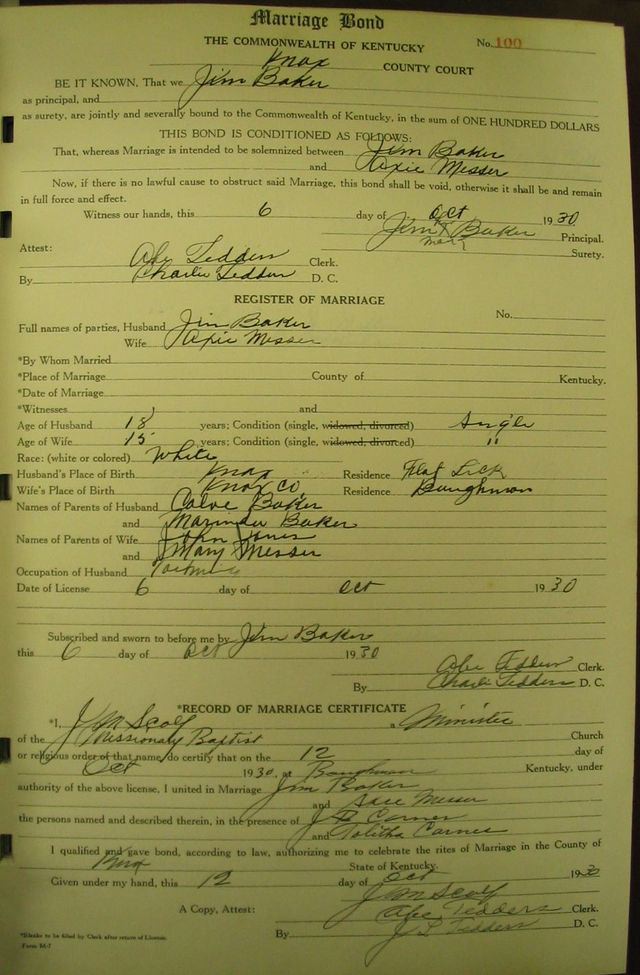 Marriage Bond
THE COMMONWEALTH OF KENTUCKY No. 100
Knox COUNTY COURT
BE IT KNOWN, That we Jim Baker
as principal, and
as surety, are jointly and severally bound to the Commonwealth of Kentucky, in the sum of ONE HUNDRED DOLLARS
THIS BOND IS CONDITIONED AS FOLLOWS:
That, whereas Marriage is intended to be solemnized between Jim Baker
and Opie Messer
Now, if there is no lawful cause to obstruct said Marriage, this bond shall be void, otherwise it shall be and remain
in full force and effect.
Witness our hands, this 6 day of Oct 1930
Jim X Baker Principal.
mark
Attest: Surety.
Abe Tedders Clerk.
By Charlie Tedders D. C.
REGISTER OF MARRIAGE
No.
Full names of parties, Husband Jim Baker
Wife Opie Messer
*By Whom Married
*Place of Marriage County of Kentucky.
*Date of Marriage
*Witnesses and
Age of Husband 18 years; Condition (single, widowed, divorced) Single
Age of Wife 15 years; Condition (single, widowed, divorced) "
Race: (white or colored) White
Husband's Place of Birth Knox Residence Flat Lick
Wife's Place of Birth Knox Co Residence Baughman
Names of Parents of Husband Calve Baker
and Marinda Baker
Names of Parents of Wife John Jones
and Mary Messer
Occupation of Husband
Date of License 6 day of Oct 1930
Subscribed and sworn to before me by Jim Baker
this 6 day of Oct 1930
Abe Tedders Clerk.
By Charlie Tedders D. C.
*RECORD OF MARRIAGE CERTIFICATE
*I, J M Scalf a Minister
of the Missionary Baptist Church
or religious order of that name, do certify that on the 12 day of
Oct 1930, at Baughman Kentucky, under
authority of the above license, I united in Marriage Jim Baker
and Messer
the persons named and described therein, in the presence of J B Carnes
and Tolitha Carnes
I qualified and gave bond, according to law, authorizing me to celebrate the rites of Marriage in the County of
Knox State of Kentucky.
Given under my hand, this 12 day of Oct 1930
J M Scalf
A Copy, Attest: Abe Tedders Clerk.
By J L Tedders D. C.
*Blanks to be filled by Clerk after return of License.
Form M-7